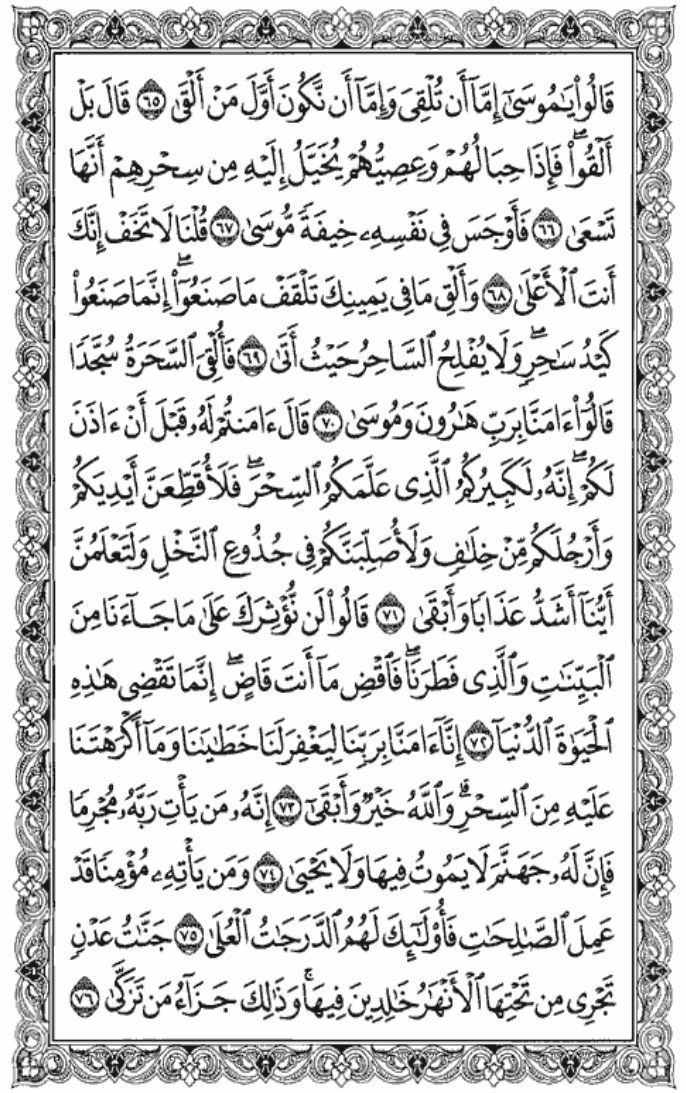 قَالُوا۟ يَـٰمُوسَىٰٓ إِمَّآ أَن تُلْقِىَ وَإِمَّآ أَن نَّكُونَ أَوَّلَ مَنْ أَلْقَىٰ ٦٥ قَالَ بَلْ
أَلْقُوا۟ ۖ فَإِذَا حِبَالُهُمْ وَعِصِيُّهُمْ يُخَيَّلُ إِلَيْهِ مِن سِحْرِهِمْ أَنَّهَا
تَسْعَىٰ ٦٦ فَأَوْجَسَ فِى نَفْسِهِۦ خِيفَةً مُّوسَىٰ ٦٧ قُلْنَا لَا تَخَفْ إِنَّكَ
أَنتَ ٱلْأَعْلَىٰ ٦٨ وَأَلْقِ مَا فِى يَمِينِكَ تَلْقَفْ مَا صَنَعُوٓا۟ ۖ إِنَّمَا صَنَعُوا۟
كَيْدُ سَـٰحِرٍ ۖ وَلَا يُفْلِحُ ٱلسَّاحِرُ حَيْثُ أَتَىٰ ٦٩ فَأُلْقِىَ ٱلسَّحَرَةُ سُجَّدًا
قَالُوٓا۟ ءَامَنَّا بِرَبِّ هَـٰرُونَ وَمُوسَىٰ ٧٠ قَالَ ءَامَنتُمْ لَهُۥ قَبْلَ أَنْ ءَاذَنَ
لَكُمْ ۖ إِنَّهُۥ لَكَبِيرُكُمُ ٱلَّذِى عَلَّمَكُمُ ٱلسِّحْرَ ۖ فَلَأُقَطِّعَنَّ أَيْدِيَكُمْ
وَأَرْجُلَكُم مِّنْ خِلَـٰفٍ وَلَأُصَلِّبَنَّكُمْ فِى جُذُوعِ ٱلنَّخْلِ وَلَتَعْلَمُنَّ
أَيُّنَآ أَشَدُّ عَذَابًا وَأَبْقَىٰ ٧١ قَالُوا۟ لَن نُّؤْثِرَكَ عَلَىٰ مَا جَآءَنَا مِنَ
ٱلْبَيِّنَـٰتِ وَٱلَّذِى فَطَرَنَا ۖ فَٱقْضِ مَآ أَنتَ قَاضٍ ۖ إِنَّمَا تَقْضِى هَـٰذِهِ
ٱلْحَيَوٰةَ ٱلدُّنْيَآ ٧٢ إِنَّآ ءَامَنَّا بِرَبِّنَا لِيَغْفِرَ لَنَا خَطَـٰيَـٰنَا وَمَآ أَكْرَهْتَنَا
عَلَيْهِ مِنَ ٱلسِّحْرِ ۗ وَٱللَّهُ خَيْرٌ وَأَبْقَىٰٓ ٧٣ إِنَّهُۥ مَن يَأْتِ رَبَّهُۥ مُجْرِمًا
فَإِنَّ لَهُۥ جَهَنَّمَ لَا يَمُوتُ فِيهَا وَلَا يَحْيَىٰ ٧٤ وَمَن يَأْتِهِۦ مُؤْمِنًا قَدْ
عَمِلَ ٱلصَّـٰلِحَـٰتِ فَأُو۟لَـٰٓئِكَ لَهُمُ ٱلدَّرَجَـٰتُ ٱلْعُلَىٰ ٧٥ جَنَّـٰتُ عَدْنٍ
تَجْرِى مِن تَحْتِهَا ٱلْأَنْهَـٰرُ خَـٰلِدِينَ فِيهَا ۚ وَذَٰلِكَ جَزَآءُ مَن تَزَكَّىٰ ٧٦